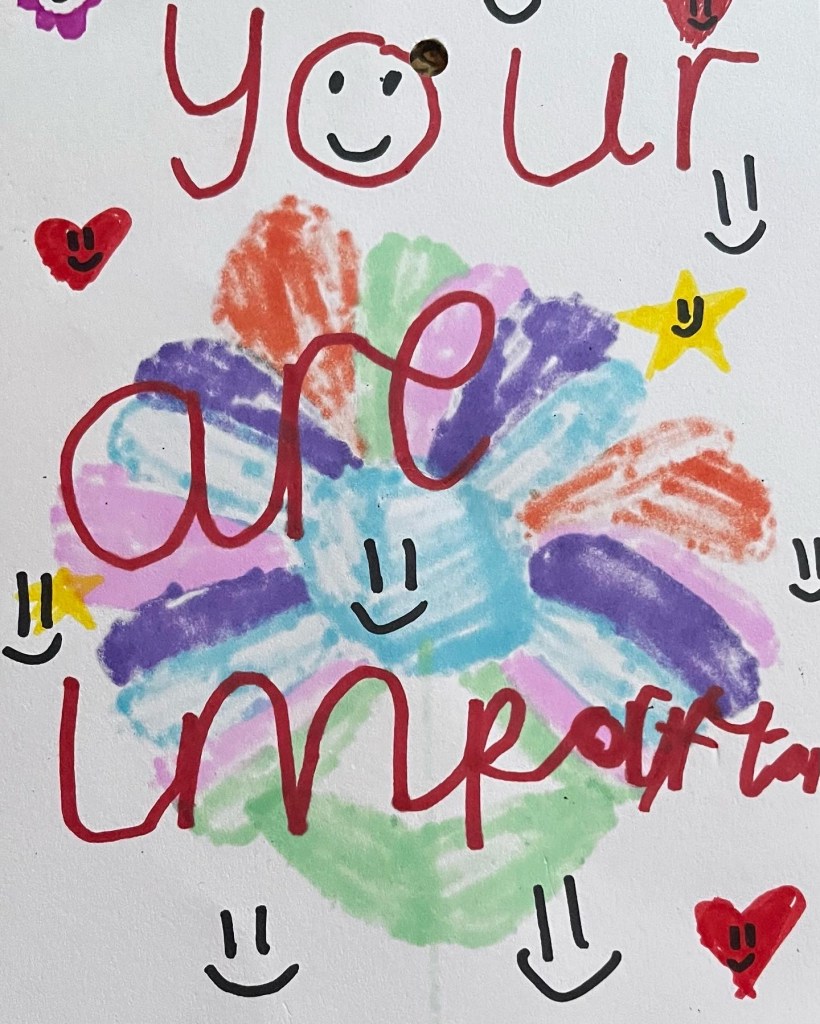 your
are
importan